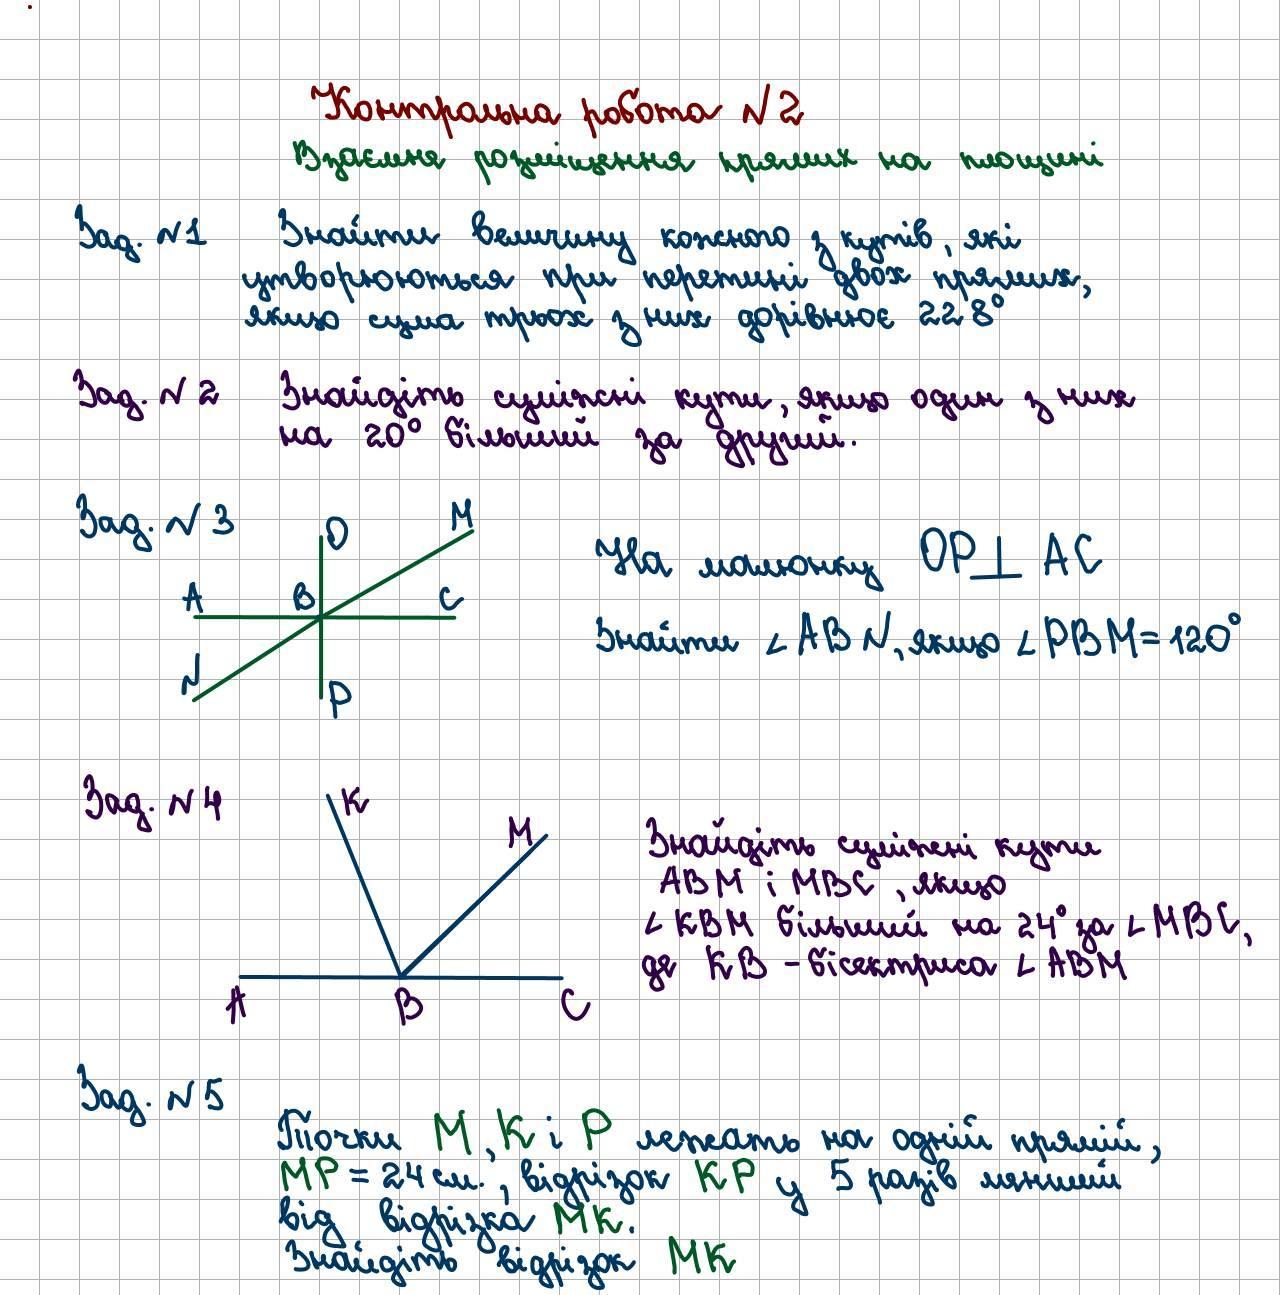 Контрольна робота №2
Взаємне розміщення прямих на площині
Зад. №1 Знайти величину кожного з кутів, які
утворюються при перетині двох прямих,
якщо сума трьох з них дорівнює 228°
Зад. №2 Знайдіть суміжні кути, якщо один з них
на 20° більший за другий.
Зад. №3
O
M
A
B
C
N
P
На малюнку OP⊥AC
Знайти ∠ABN, якщо ∠PBM=120°
Зад. №4
K
M
A
B
C
Знайдіть суміжні кути
ABM і MBC, якщо
∠KBM більший на 24° за ∠MBC,
де KB - бісектриса ∠ABM
Зад. №5
Точки M, K і P лежать на одній прямій,
MP = 24 см., відрізок KP у 5 разів менший
від відрізка MK.
Знайдіть відрізок MK